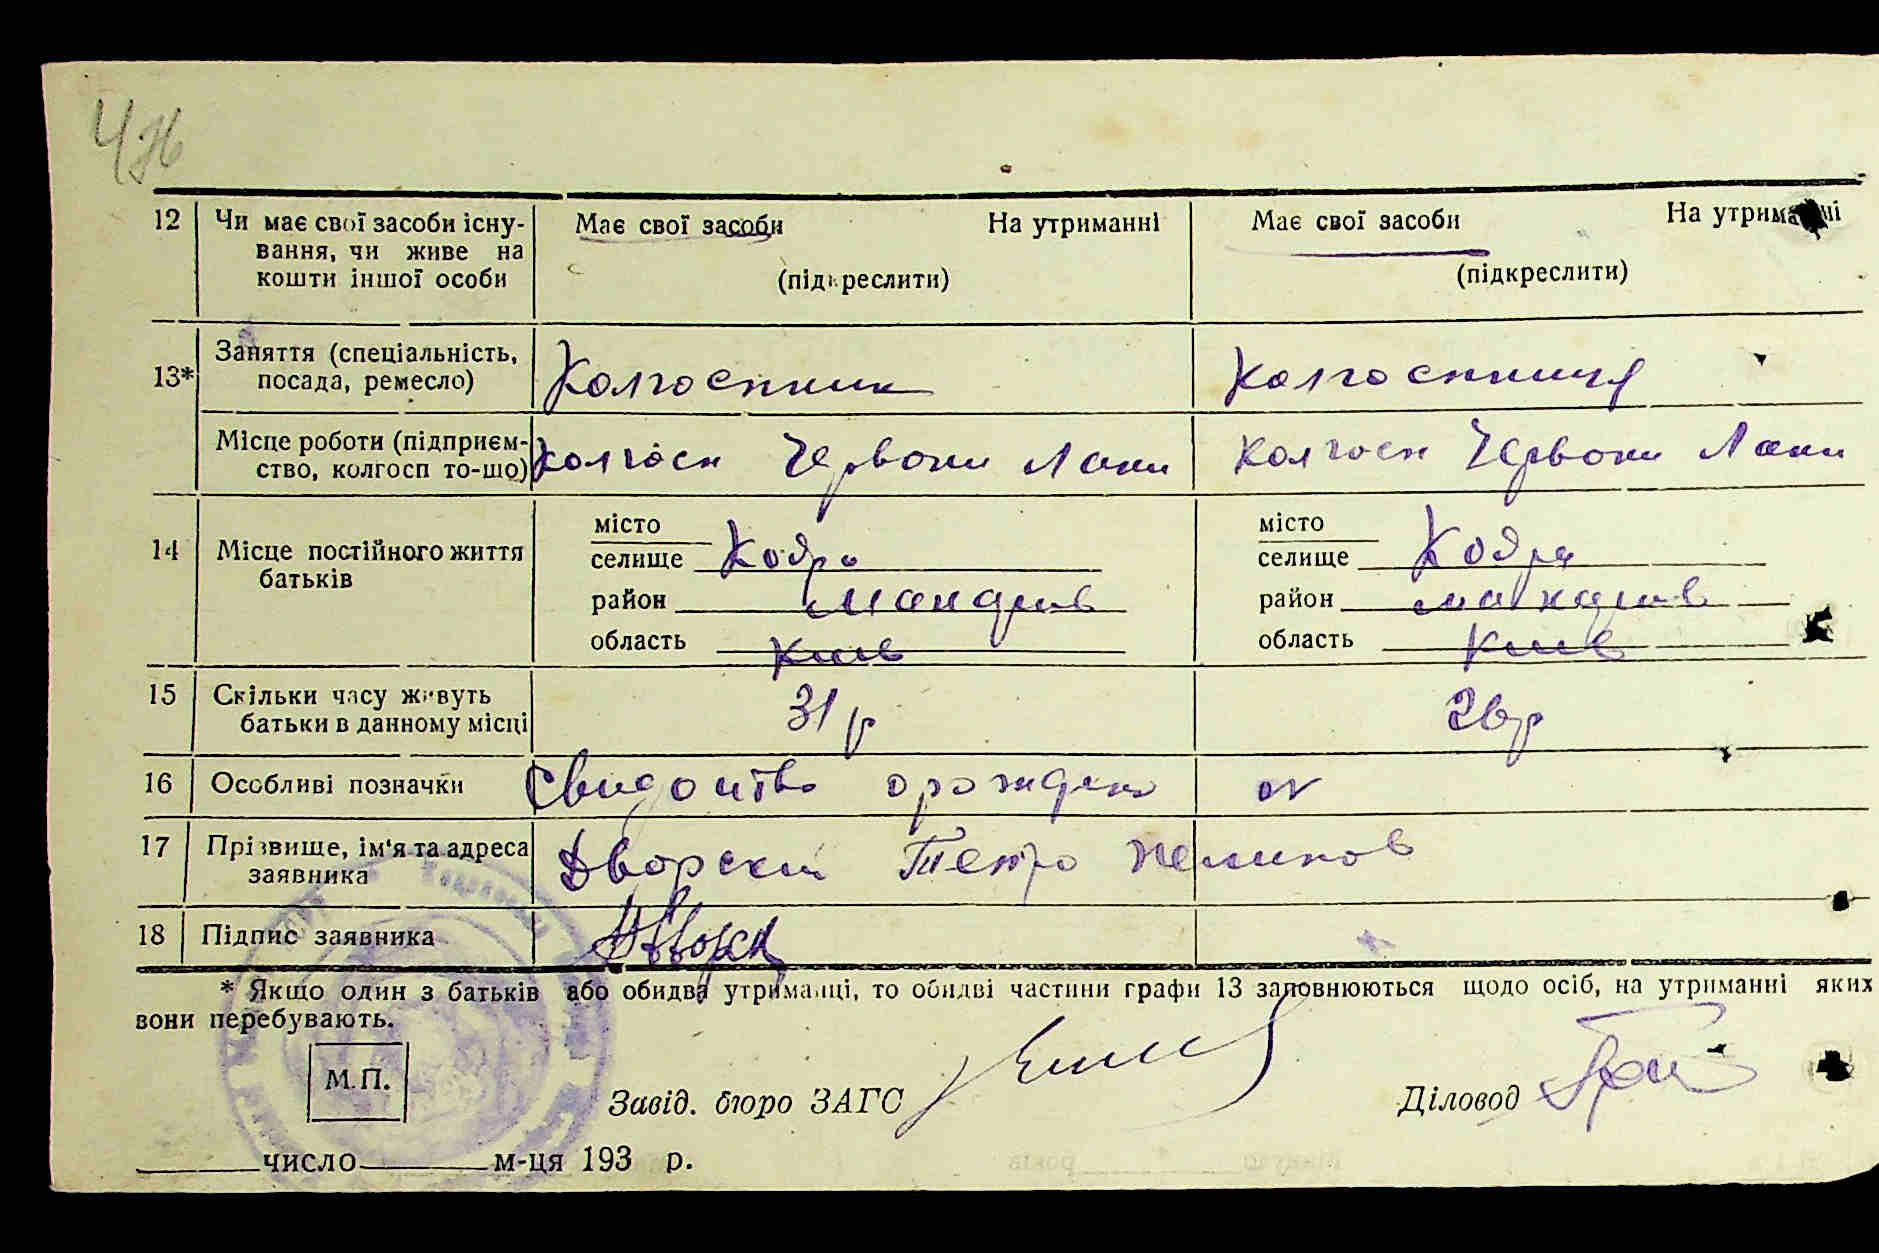 12 Чи має свої засоби існу- Має свої засоби На утриманні Має свої засоби На утриманні
вання, чи живе на
кошти іншої особи (підкреслити) (підкреслити)
13* Заняття (спеціальність, Колгоспник Колгоспниця
посада, ремесло)
Місце роботи (підприєм- Колгосп Червони Лани Колгосп Червони Лани
ство, колгосп то-що)
місто місто
14 Місце постійного життя селище Кодра селище Кодра
батьків район Макарив район Макарив
область Киів область Киів
15 Скільки часу живуть 31 р 26 р
батьки в данному місці
16 Особливі позначки
17 Прізвище, ім'я та адреса Дворский Петро
заявника
18 Підпис заявника Дворск
* Якщо один з батьків або обидва утриманці, то обидві частини графи 13 заповнюються щодо осіб, на утриманні яких
вони перебувають.
М.П.
Завід. бюро ЗАГС Діловод
число м-ця 193 р.